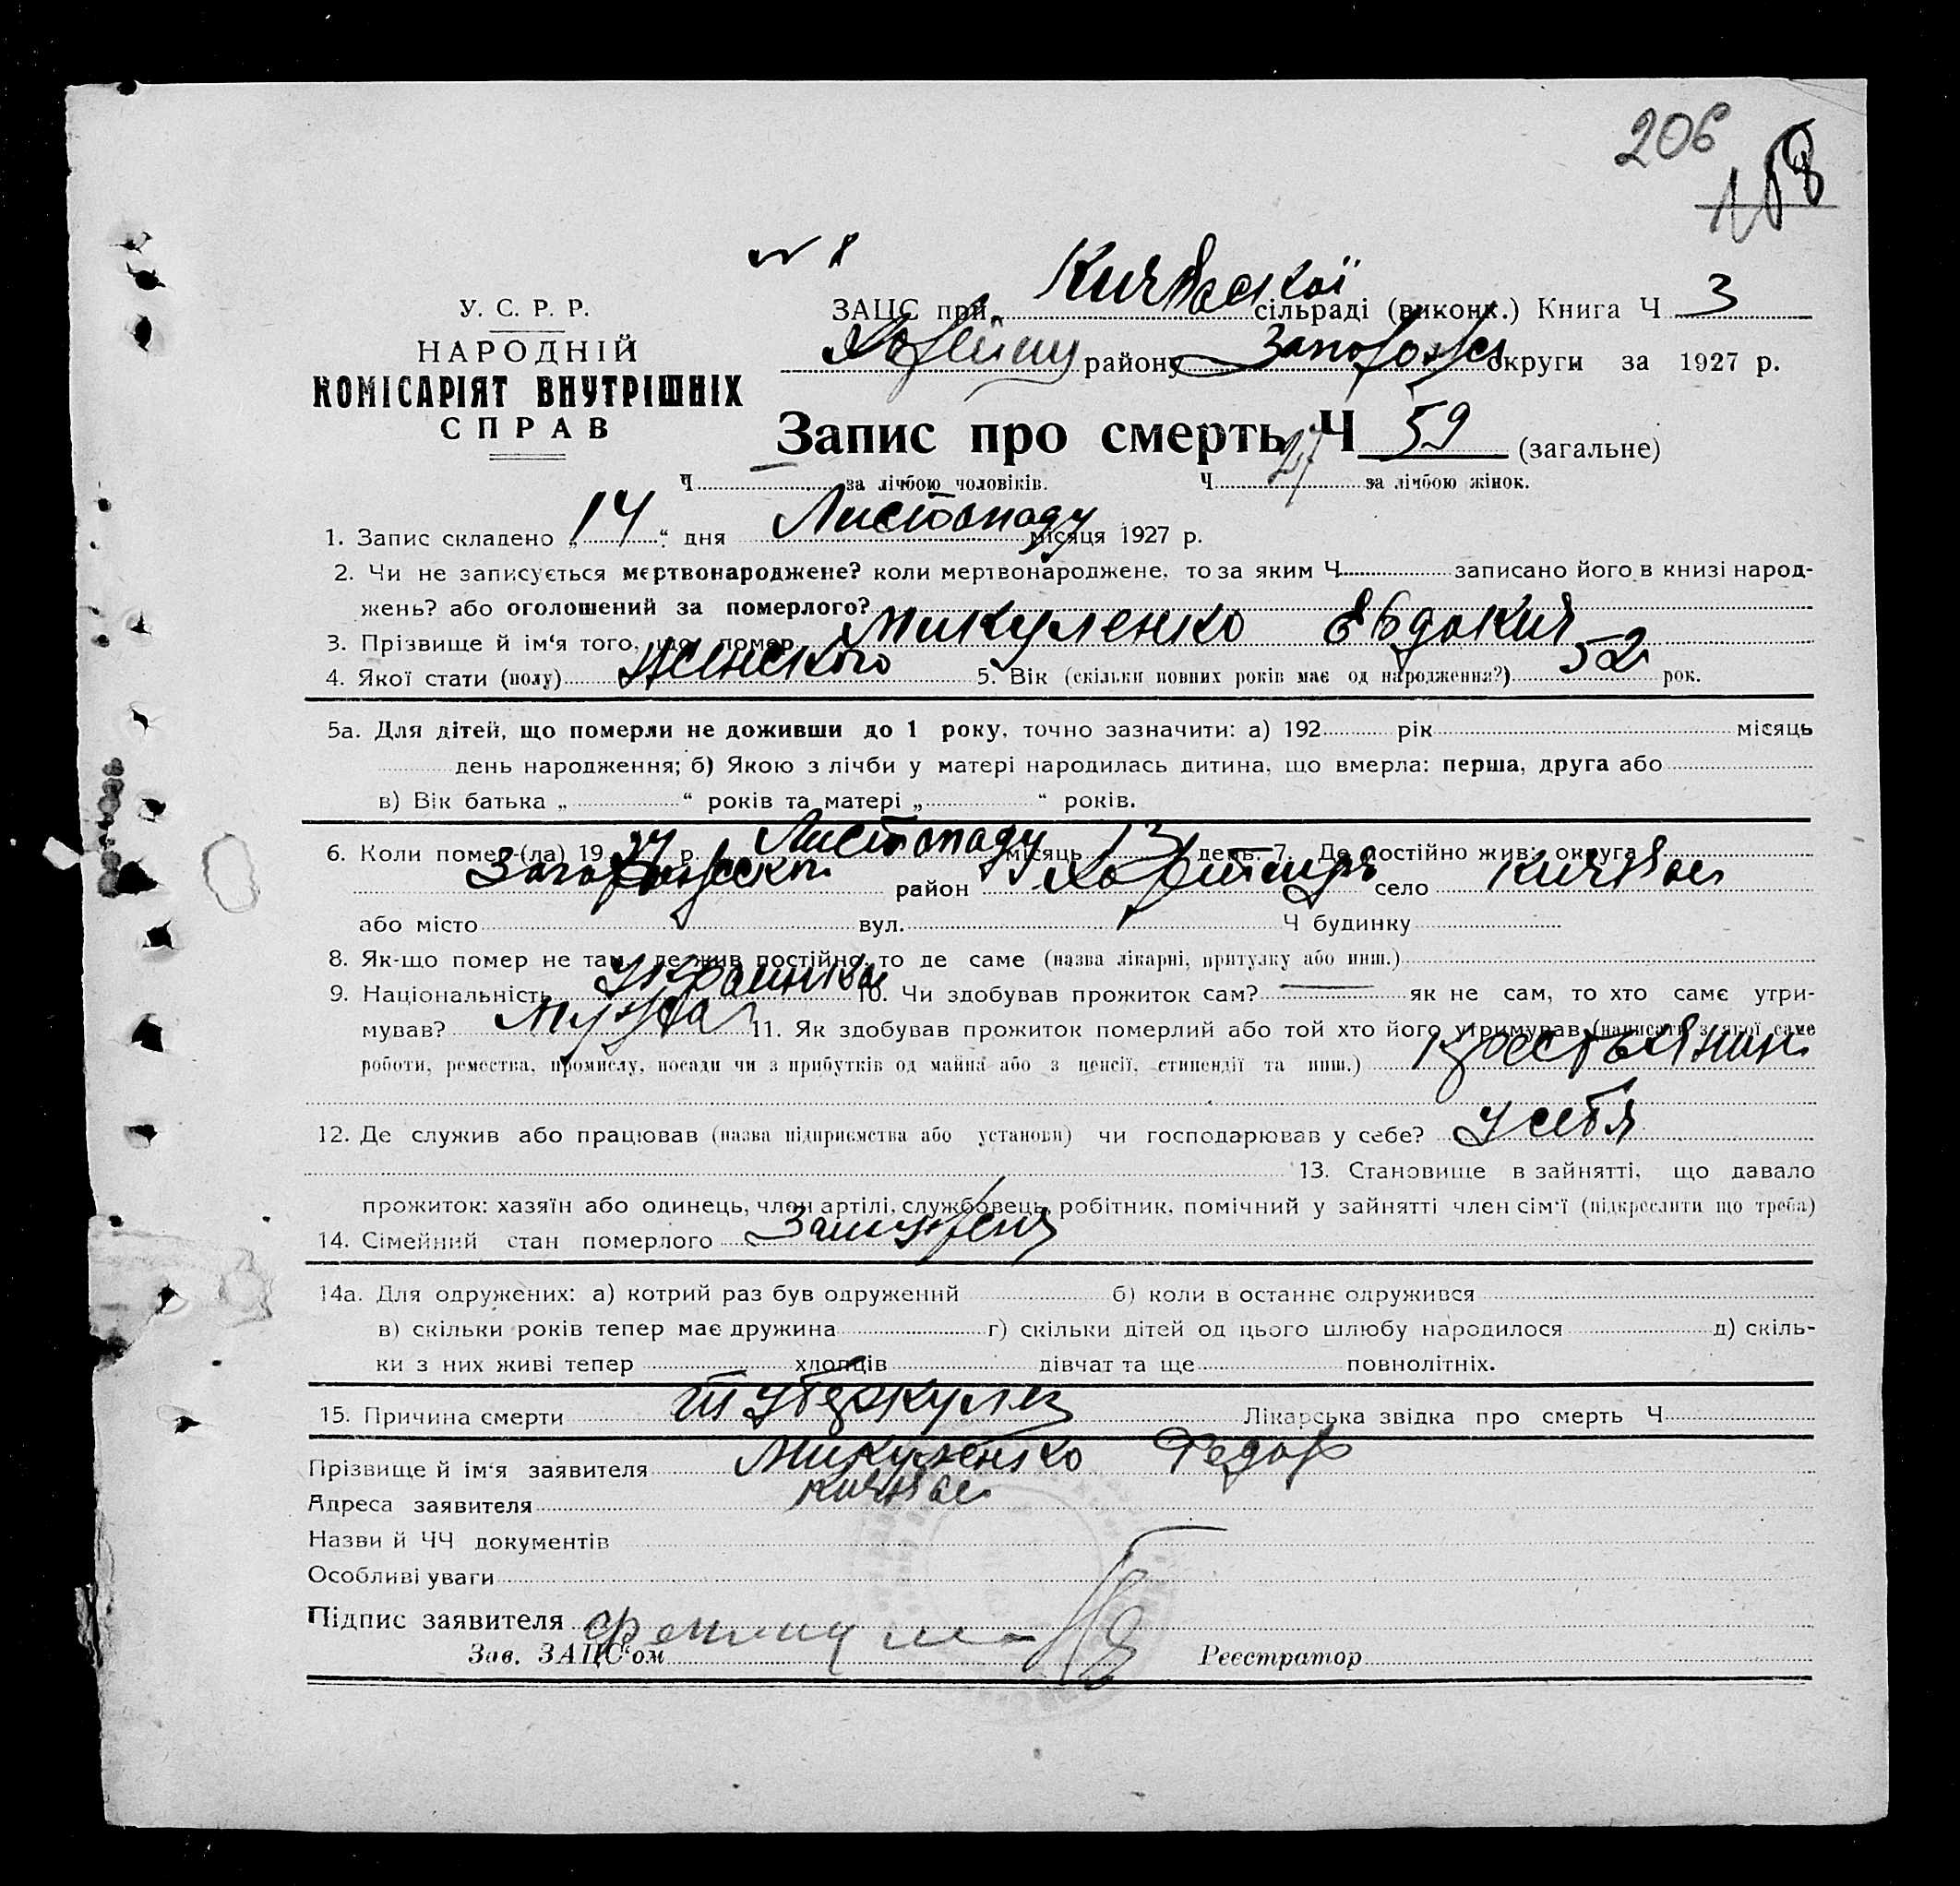 206
158
№ 8
У. С. Р. Р.
НАРОДНІЙ
КОМІСАРІЯТ ВНУТРІШНІХ
СПРАВ
ЗАЦС при Кичкаської сільраді (виконк.) Книга Ч 3
району Запорожск округи за 1927 р.
Запис про смерть Ч 59 (загальне)
Ч — за лічбою чоловіків. Ч 27 за лічбою жінок.
1. Запис складено „ 14 “ дня Листопаду місяця 1927 р.
2. Чи не записується мертвонароджене? коли мертвонароджене, то за яким Ч записано його в книзі народ-
жень? або оголошений за померлого?
3. Прізвище й ім'я того, що помер Микуленко Евдокия
4. Якої стати (полу) женского 5. Вік (скільки повних років має од народження?) 52 рок.
5а. Для дітей, що померли не доживши до 1 року, точно зазначити: а) 192 рік місяць
день народження; б) Якою з лічби у матері народилась дитина, що вмерла: перша, друга або
в) Вік батька „ “ років та матері „ “ років.
6. Коли помер-(ла) 19 27 р. Листопаду місяць 13 день. 7. Де постійно жив: округа
Запорожск. район село Кичкас
або місто вул. Ч будинку
8. Як-що помер не там, де жив постійно, то де саме (назва лікарні, притулку або инш.)
9. Національність Украинка 10. Чи здобував прожиток сам? — як не сам, то хто саме утри-
мував? Мужа 11. Як здобував прожиток померлий або той хто його утримував (написати з якої саме
роботи, ремества, промислу, посади чи з прибутків од майна або з пенсії, стипендії та инш.) крестьянин
12. Де служив або працював (назва підприємства або установи) чи господарював у себе? У себя
13. Становище в зайнятті, що давало
прожиток: хазяїн або одинець, член артілі, службовець, робітник, помічний у зайнятті член сім'ї (підкреслити що треба)
14. Сімейний стан померлого Замужем
14а. Для одружених: а) котрий раз був одружений б) коли в останнє одружився
в) скільки років тепер має дружина г) скільки дітей од цього шлюбу народилося д) скіль-
ки з них живі тепер хлопців дівчат та ще повнолітніх.
15. Причина смерти туберкулез Лікарська звідка про смерть Ч
Прізвище й ім'я заявителя Микуленко Федор
Адреса заявителя Кичкас
Назви й ЧЧ документів
Особливі уваги
Підпис заявителя
Зав. ЗАЦС'ом Реєстратор